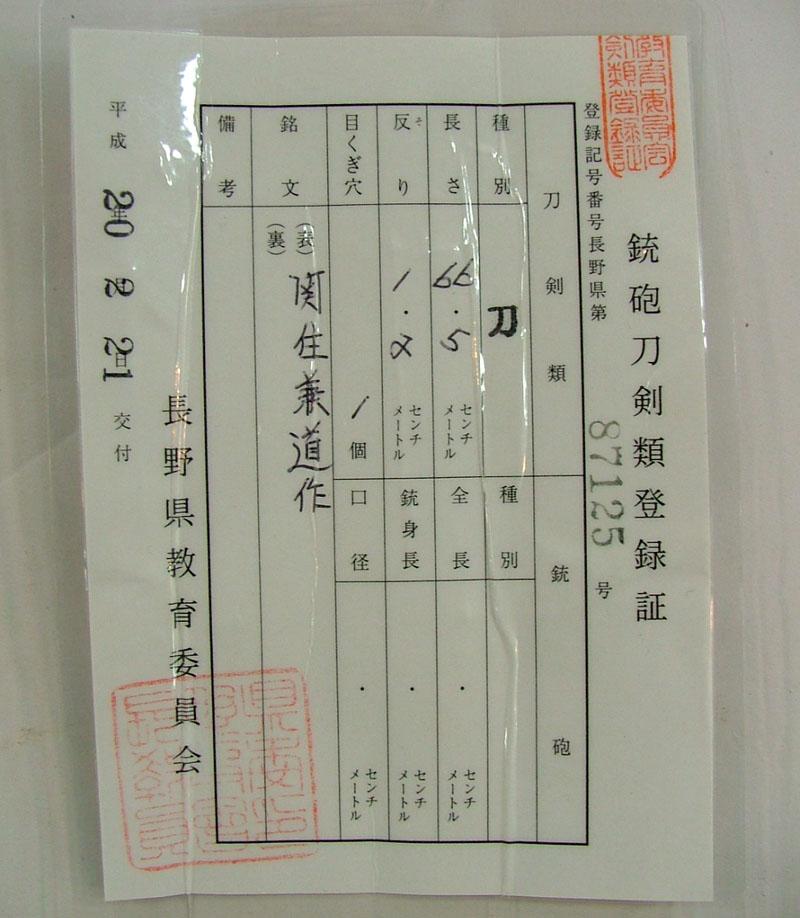 銃砲刀剣類登録証
登録記号番号長野県第87125号
刀剣類
銃砲
種別
刀
種別
長さ
66.5
センチメートル
全長
・
センチメートル
反り
そ
1.2
センチメートル
銃身長
・
センチメートル
目くぎ穴
1個
口径
・
センチメートル
銘文
(表)
関住兼道作
(裏)
備考
長野県教育委員会
平成20年2月21日交付
教育委員会
剣類登録証